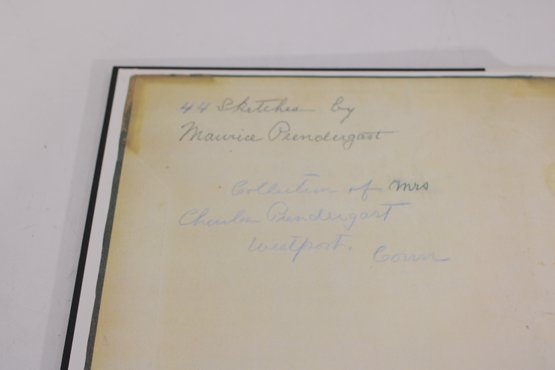 44 Sketches by
Maurice Prendergast
Collection of Mrs
Charles Prendergast
Westport. Conn